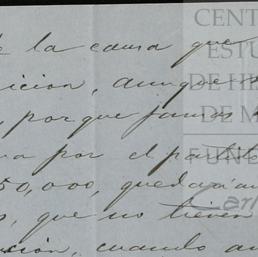 de la causa que
icion, aunque
, porque jamas
va por el partido
50,000, quedará
s, que no tienen
usión, cuando
CENT
ESTU
DE HI
DE M
FUN